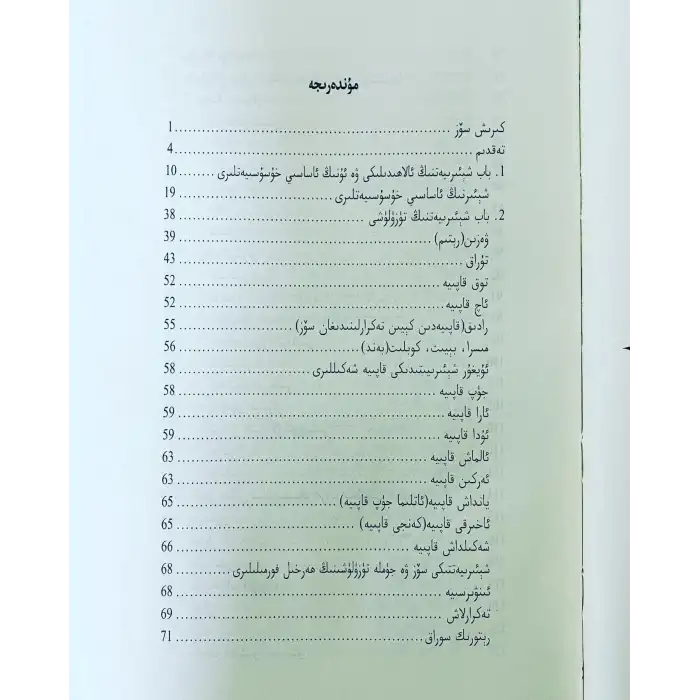 مۇندەرىجە
كىرىش سۆز ........................................ 1
تەقدىم ........................................ 4
1. باب شېئىرىيەتنىڭ ئالاھىدىلىكى ۋە ئۇنىڭ ئاساسىي خۇسۇسىيەتلىرى ........ 10
شېئىرنىڭ ئاساسىي خۇسۇسىيەتلىرى ........................ 19
2. باب شېئىرىيەتنىڭ تۈزۈلۈشى .............................. 38
ۋەزىن(رىتىم) ........................................ 39
تۇراق ........................................ 43
توق قاپىيە ........................................ 52
ئاچ قاپىيە ........................................ 52
رادىق(قاپىيەدىن كېيىن تەكرارلىنىدىغان سۆز) .................... 55
مىسرا، بېيىت، كوبلىت(بەند) .............................. 56
ئۇيغۇر شېئىرىيىتىدىكى قاپىيە شەكىللىرى .................... 58
جۈپ قاپىيە ........................................ 58
ئارا قاپىيە ........................................ 59
ئۇدا قاپىيە ........................................ 59
ئالماش قاپىيە ........................................ 63
ئەركىن قاپىيە ........................................ 63
يانداش قاپىيە(ئاتلىما جۈپ قاپىيە) ........................ 65
ئاخىرقى قاپىيە(كەنجى قاپىيە) .............................. 65
شەكىلداش قاپىيە ........................................ 66
شېئىرىيەتتىكى سۆز ۋە جۈملە تۈزۈلۈشىنىڭ ھەرخىل فورمىلىرى .......... 68
ئىنۋېرسىيە ........................................ 68
تەكرارلاش ........................................ 69
رېتورىك سوراق ........................................ 71